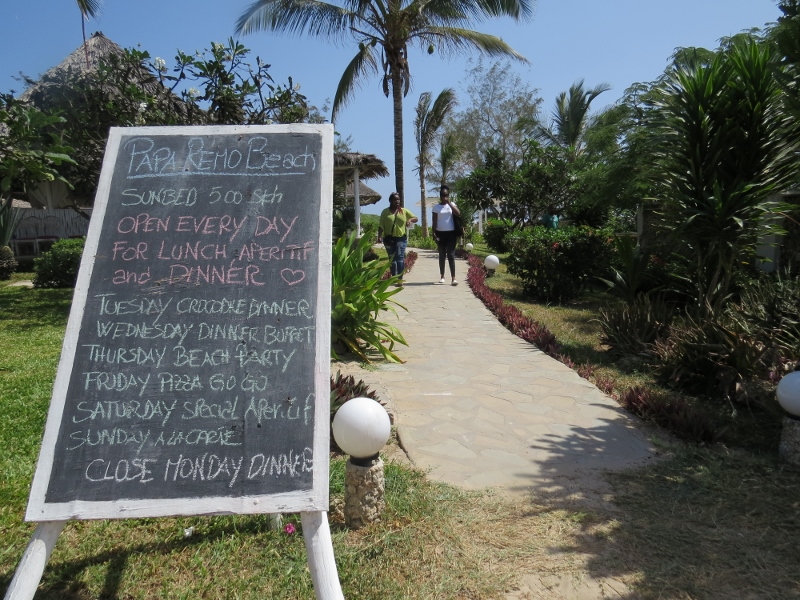 PAPA REMO BEACH
SUNBED 500 Ssh
OPEN EVERY DAY
FOR LUNCH APERITIF
and DINNER ♡
TUESDAY CROCODILE DINNER
WEDNESDAY DINNER BUFFET
THURSDAY BEACH PARTY
FRIDAY PIZZA GO GO
SATURDAY SPECIAL APERITIF
SUNDAY A LA CARTE
CLOSE MONDAY DINNER